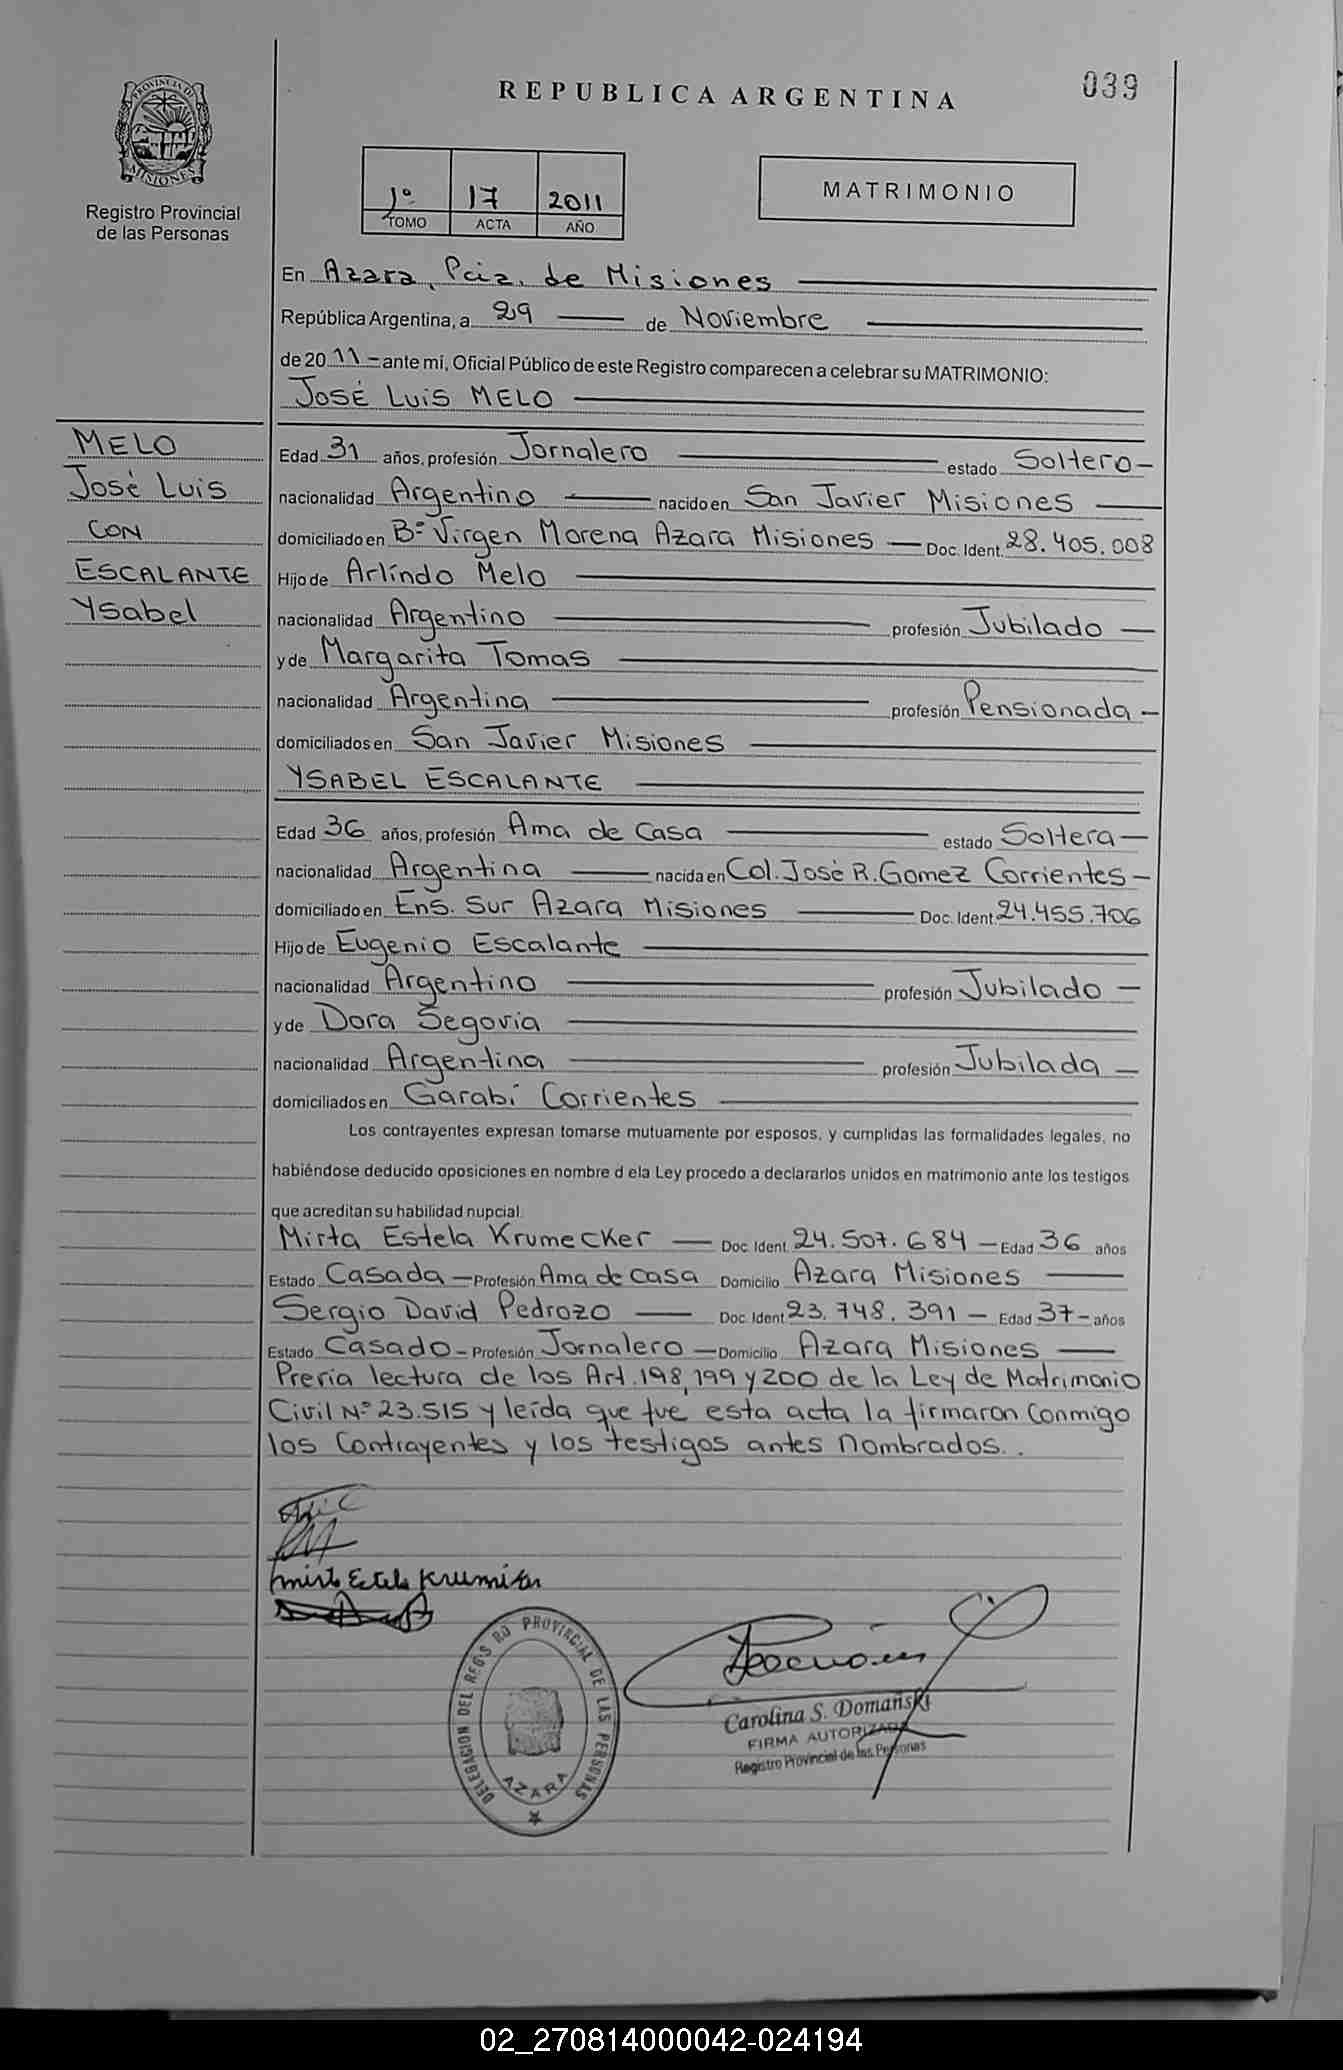 039
REPUBLICA ARGENTINA
PROVINCIA DE MISIONES
Registro Provincial
de las Personas
1º 17 2011
TOMO ACTA AÑO
MATRIMONIO
En Azara, Pcia. de Misiones
República Argentina, a 29 de Noviembre
de 20 11 - ante mí, Oficial Público de este Registro comparecen a celebrar su MATRIMONIO:
José Luis MELO
MELO
José Luis
CON
ESCALANTE
Ysabel
Edad 31 años, profesión Jornalero estado Soltero-
nacionalidad Argentino nacido en San Javier Misiones
domiciliado en Bº Virgen Morena Azara Misiones - Doc. Ident. 28.405.008
Hijo de Arlíndo Melo
nacionalidad Argentino profesión Jubilado -
y de Margarita Tomas
nacionalidad Argentina profesión Pensionada -
domiciliados en San Javier Misiones
YSABEL ESCALANTE
Edad 36 años, profesión Ama de Casa estado Soltera-
nacionalidad Argentina nacida en Col. José R. Gomez Corrientes-
domiciliado en Ens. Sur Azara Misiones Doc. Ident. 24.455.706
Hijo de Eugenio Escalante
nacionalidad Argentino profesión Jubilado -
y de Dora Segovia
nacionalidad Argentina profesión Jubilada -
domiciliados en Garabí Corrientes
Los contrayentes expresan tomarse mutuamente por esposos, y cumplidas las formalidades legales, no
habiéndose deducido oposiciones en nombre d ela Ley procedo a declararlos unidos en matrimonio ante los testigos
que acreditan su habilidad nupcial.
Mirta Estela Krumecker - Doc. Ident. 24.507.684 - Edad 36 años
Estado Casada - Profesión Ama de casa Domicilio Azara Misiones
Sergio David Pedrozo - Doc. Ident 23.748.391 - Edad 37- años
Estado Casado - Profesión Jornalero - Domicilio Azara Misiones
Previa lectura de los Art. 198, 199 y 200 de la Ley de Matrimonio
Civil Nº 23.515 y leída que fue esta acta la firmaron conmigo
los Contrayentes y los testigos antes nombrados..
DELEGACION DEL REGISTRO PROVINCIAL DE LAS PERSONAS
AZARA
Carolina S. Domañski
FIRMA AUTORIZADA
Registro Provincial de las Personas
02_270814000042-024194